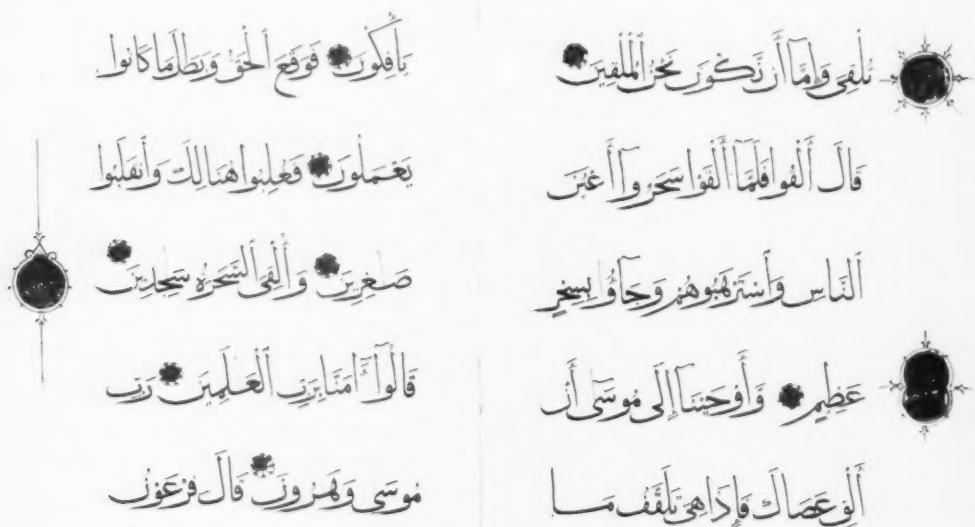 تُلْقِيَ وَإِمَّآ أَن نَّكُونَ نَحْنُ ٱلْمُلْقِينَ
قَالَ أَلْقُوا فَلَمَّآ أَلْقَوْا سَحَرُوٓا أَعْيُنَ
ٱلنَّاسِ وَٱسْتَرْهَبُوهُمْ وَجَآءُو بِسِحْرٍ
عَظِيمٍ وَأَوْحَيْنَآ إِلَىٰ مُوسَىٰٓ أَنْ
أَلْقِ عَصَاكَ فَإِذَا هِيَ تَلْقَفُ مَا
يَأْفِكُونَ فَوَقَعَ ٱلْحَقُّ وَبَطَلَ مَا كَانُوا
يَعْمَلُونَ فَغُلِبُوا هُنَالِكَ وَٱنقَلَبُوا
صَٰغِرِينَ وَأُلْقِيَ ٱلسَّحَرَةُ سَٰجِدِينَ
قَالُوٓا ءَامَنَّا بِرَبِّ ٱلْعَٰلَمِينَ رَبِّ
مُوسَىٰ وَهَٰرُونَ قَالَ فِرْعَوْنُ